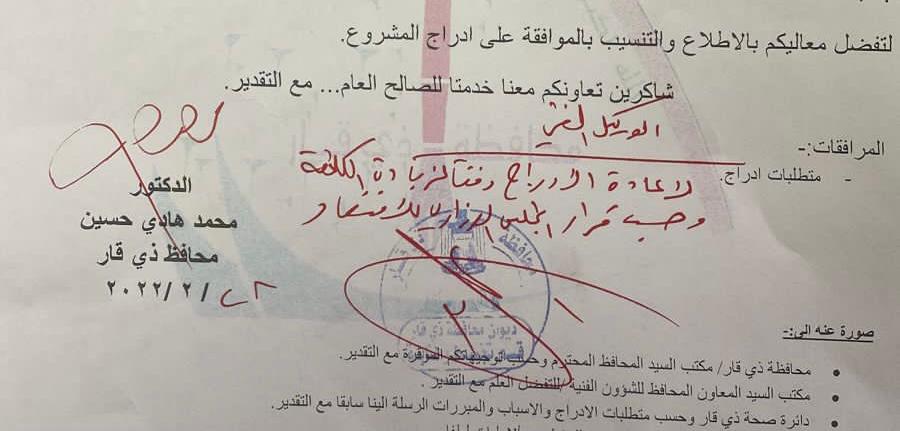 لتفضل معاليكم بالاطلاع والتنسيب بالموافقة على ادراج المشروع.
شاكرين تعاونكم معنا خدمتا للصالح العام... مع التقدير.
الوكيل الفني
المرافقات:-
- متطلبات ادراج.
لاعادة الادراج وفقا لزيادة الكلفة
وحسب قرار المجلس الوزاري للاقتصاد
الدكتور
محمد هادي حسين
محافظ ذي قار
٢٨/ ٢ /٢٠٢٢
ديوان محافظة ذي قار
صورة عنه الى:-
• محافظة ذي قار/ مكتب السيد المحافظ المحترم وحسب توجيهاتكم الموقرة مع التقدير.
• مكتب السيد المعاون المحافظ للشؤون الفنية /للتفضل العلم مع التقدير .
• دائرة صحة ذي قار وحسب متطلبات الادراج والاسباب والمبررات الرسلة الينا سابقا مع التقدير.